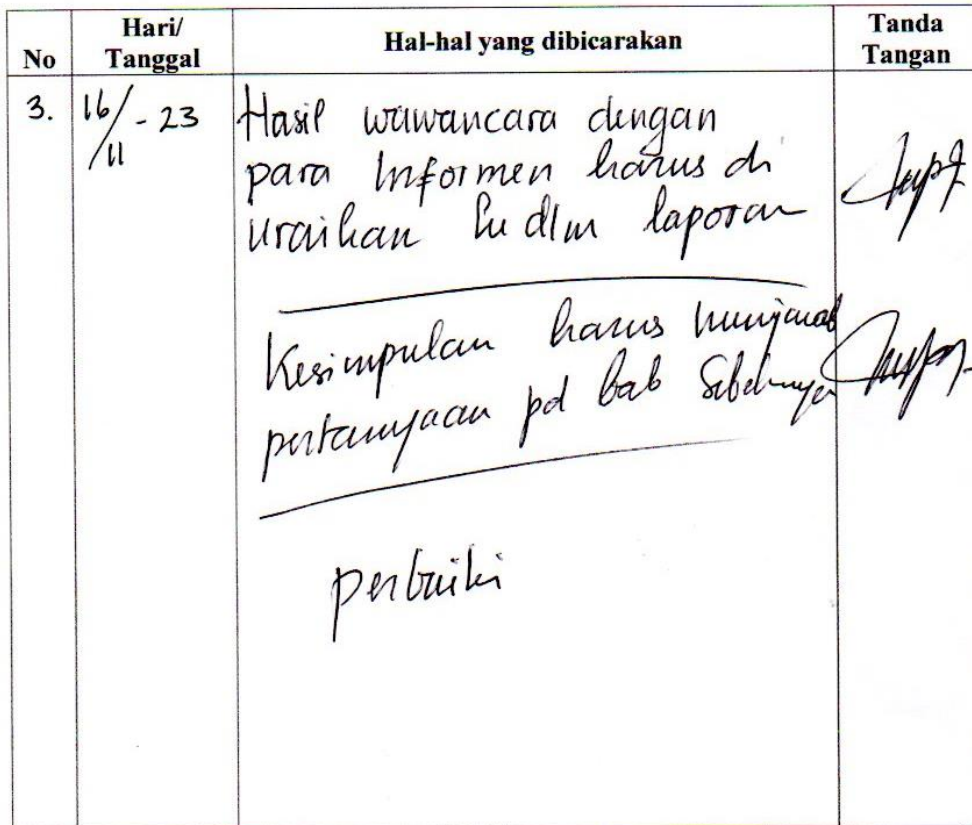 No
Hari/
Tanggal
Hal-hal yang dibicarakan
Tanda
Tangan
3.
16/11 - 23
Hasil wawancara dengan
para Informen harus di
uraikan ke dlm laporan
Kesimpulan harus menjawab
pertanyaan pd bab Sebelumnya
perbaiki